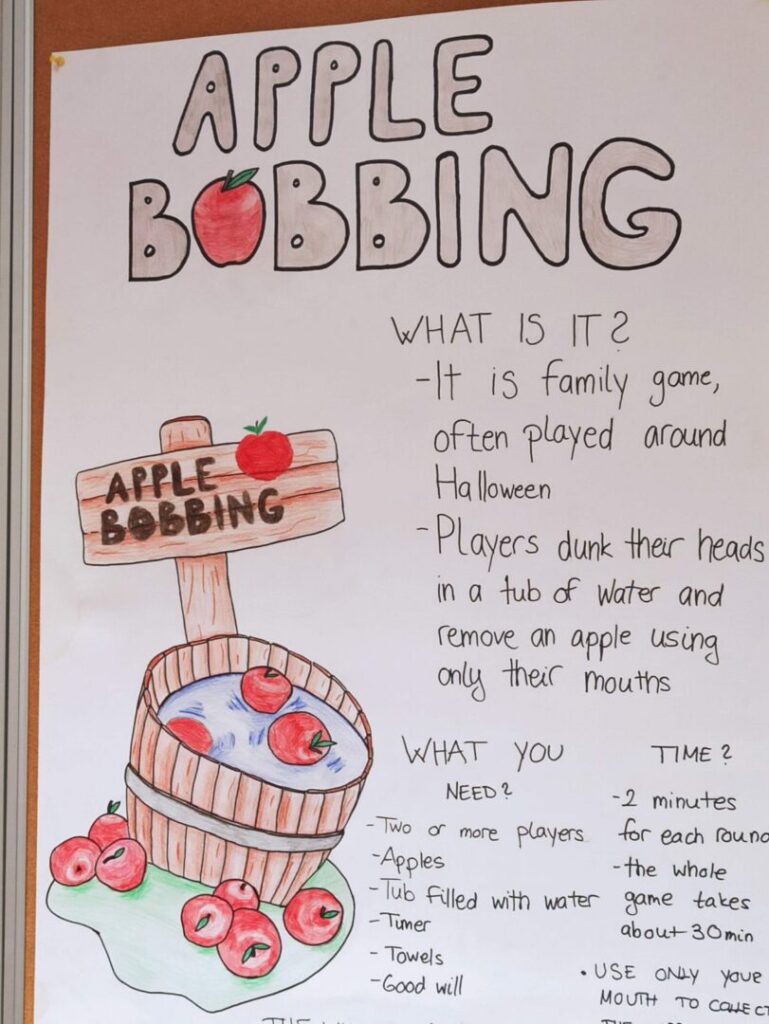 APPLE
BOBBING
WHAT IS IT?
-It is family game,
often played around
Halloween
-Players dunk their heads
in a tub of water and
remove an apple using
only their mouths
APPLE
BOBBING
WHAT YOU
NEED?
-Two or more players
-Apples
-Tub filled with water
-Timer
-Towels
-Good will
TIME?
-2 minutes
for each round
-the whole
game takes
about 30min
• USE ONLY YOUR
MOUTH TO COLLECT